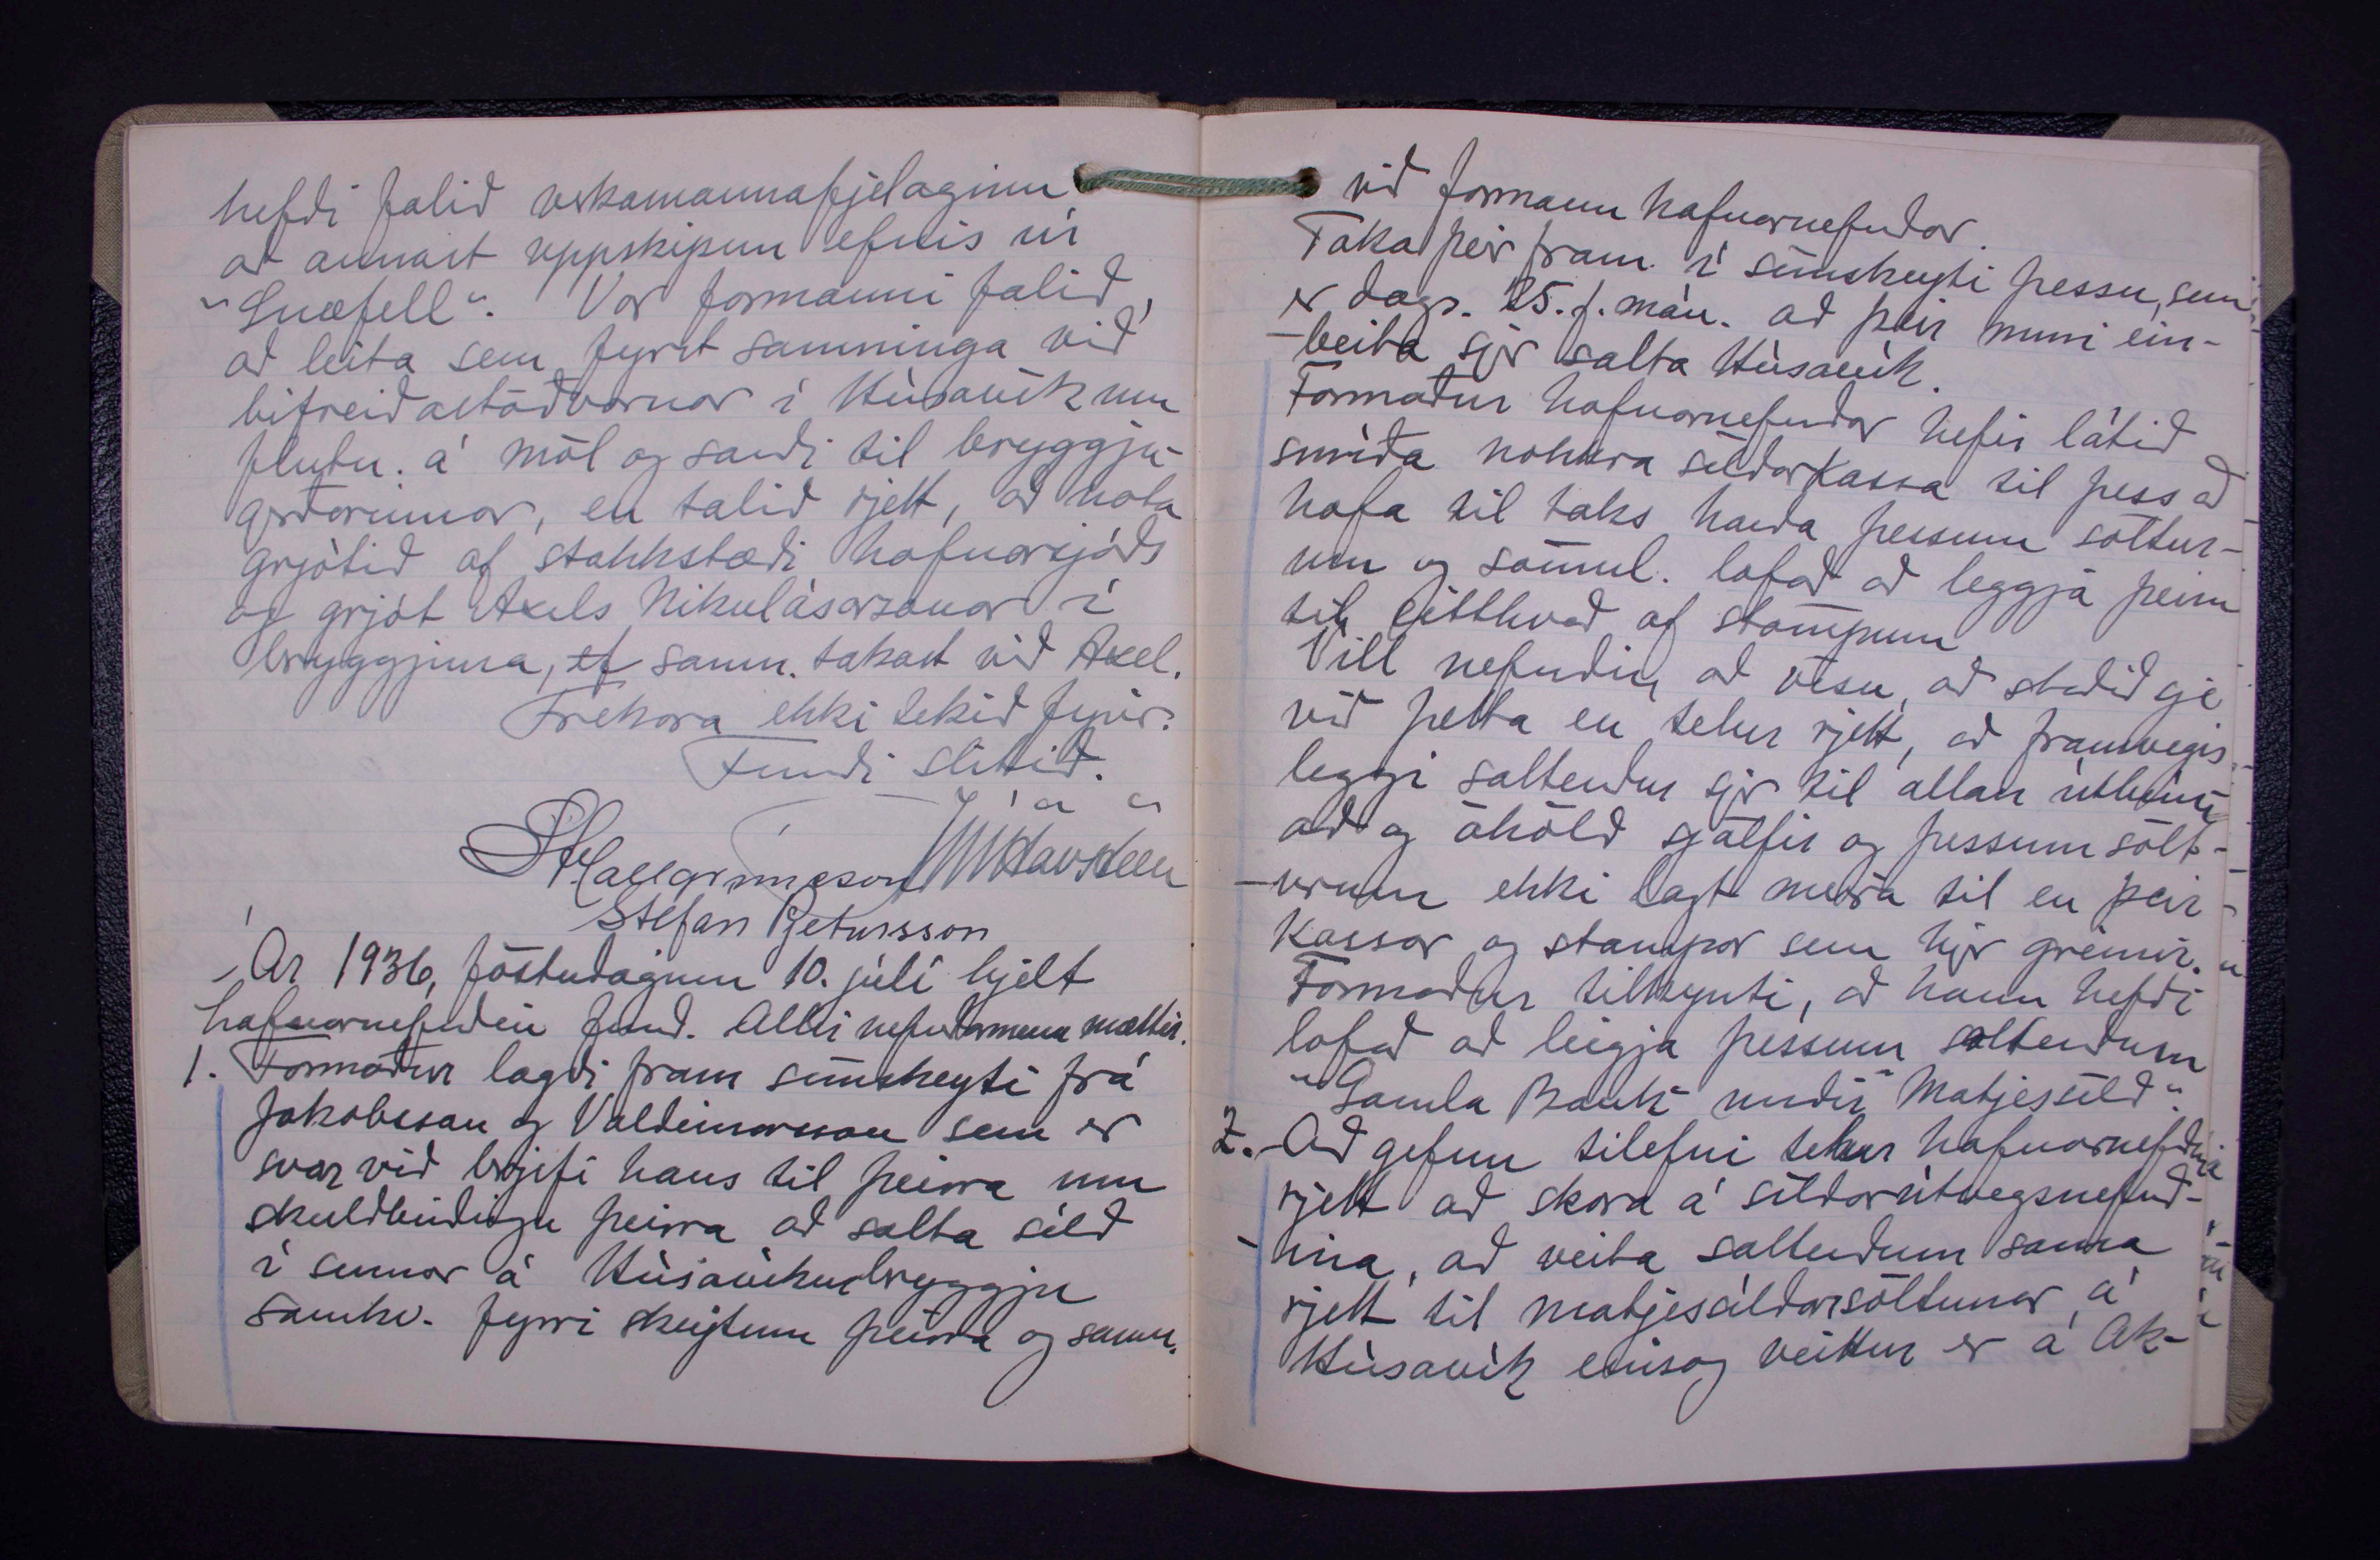 hefði falið verkamannafjelaginu
að annast uppskipun efnis úr
"Snæfell". Var formanni falið,
að leita sem fyrst samninga við
bifreiðastöðvarnar í Húsavík um
flutn. á möl og sandi til bryggju-
gerðarinnar, en talið rjett, að nota
grjótið af stakkstæði hafnarsjóðs
og grjót Axels Nikulásarsonar í
bryggjuna, ef samn. takast við Axel.
Frekara ekki tekið fyrir.
Fundi slitið.
St Hallgrímsson JHHavsteen
Stefán Pjetursson
Ár 1936, föstudaginn 10. júlí hjelt
hafnarnefndin fund. Allir nefndarmenn mættir.
1. Formaður lagði fram símskeyti frá
Jakobsson og Valdimarsson sem er
svar við brjefi hans til þeirra um
skuldbindingu þeirra að salta síld
í sumar á Húsavíkurbryggju
samkv. fyrri skeytum þeirra og samn.
við formann hafnarnefndar.
Taka þeir fram í símskeyti þessu, sem
er dags. 25. f. mán. að þeir muni ein-
-beita sjer salta Húsavík.
Formaður hafnarnefndar hefir látið
smíða nokkra síldarkassa til þess að
hafa til taks handa þessum söltur-
um og sömul. lofað að leggja þeim
til eitthvað af stömpum
Vill nefndin að vísu, að staðið sje
við þetta en telur rjett, að framvegis
leggi saltendur sjer til allan útbún-
að og áhöld sjálfir og þessum sölt-
-urum ekki lagt meira til en þeir
kassar og stampar sem hjer greinir.
Formaður tilkynti, að hann hefði
lofað að leigja þessum saltendum
"Gamla Bauk" undir "Matjessíld".
2. Að gefnu tilefni telur hafnarnefndin
rjett að skora á síldarútvegsnefnd-
-ina, að veita saltendum sama
rjett til matjessíldarsöltunar á
Húsavík einsog veittur er á Ak-